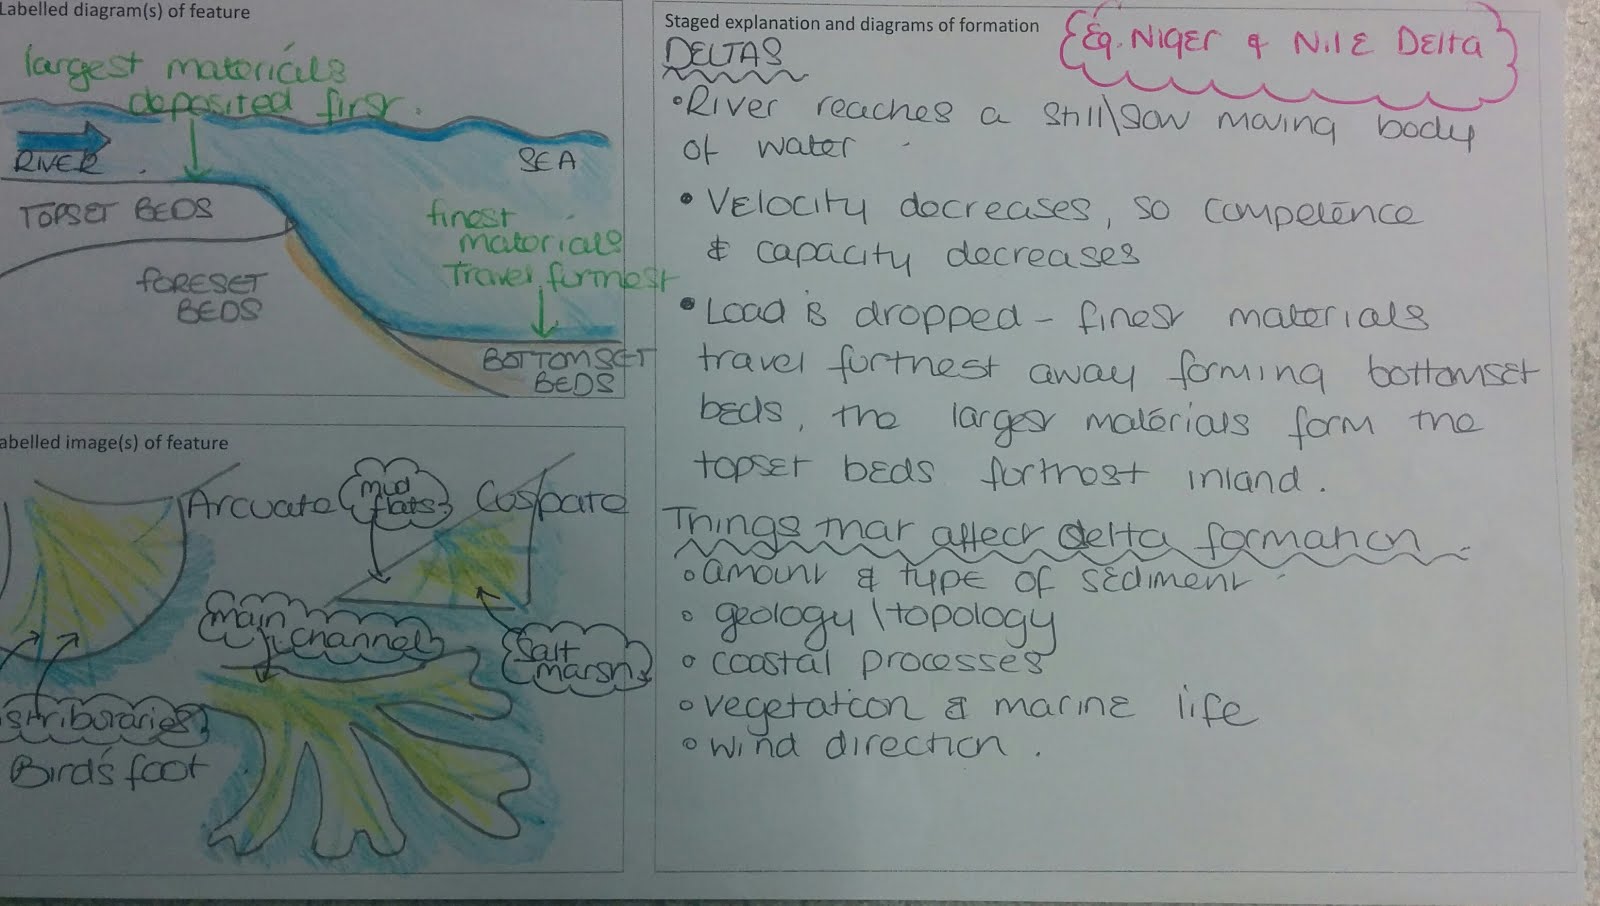 Labelled diagram(s) of feature
largest materials
deposited first.
RIVER
SEA
TOPSET BEDS
finest
materials
Travel furthest
FORESET
BEDS
BOTTOMSET
BEDS
abelled image(s) of feature
Arcuate
mud
flats
Cuspate
main
channel
Salt
marsh
stributaries
Bird's foot
Staged explanation and diagrams of formation
Eg. Niger & Nile Delta
DELTAS
• River reaches a still\slow moving body
of water
• Velocity decreases, so competence
& capacity decreases
• Load is dropped - finest materials
travel furthest away forming bottomset
beds, the largest materials form the
topset beds furthest inland.
Things that affect delta formation
o amount & type of sediment
o geology \ topology
o coastal processes
o vegetation & marine life
o wind direction.